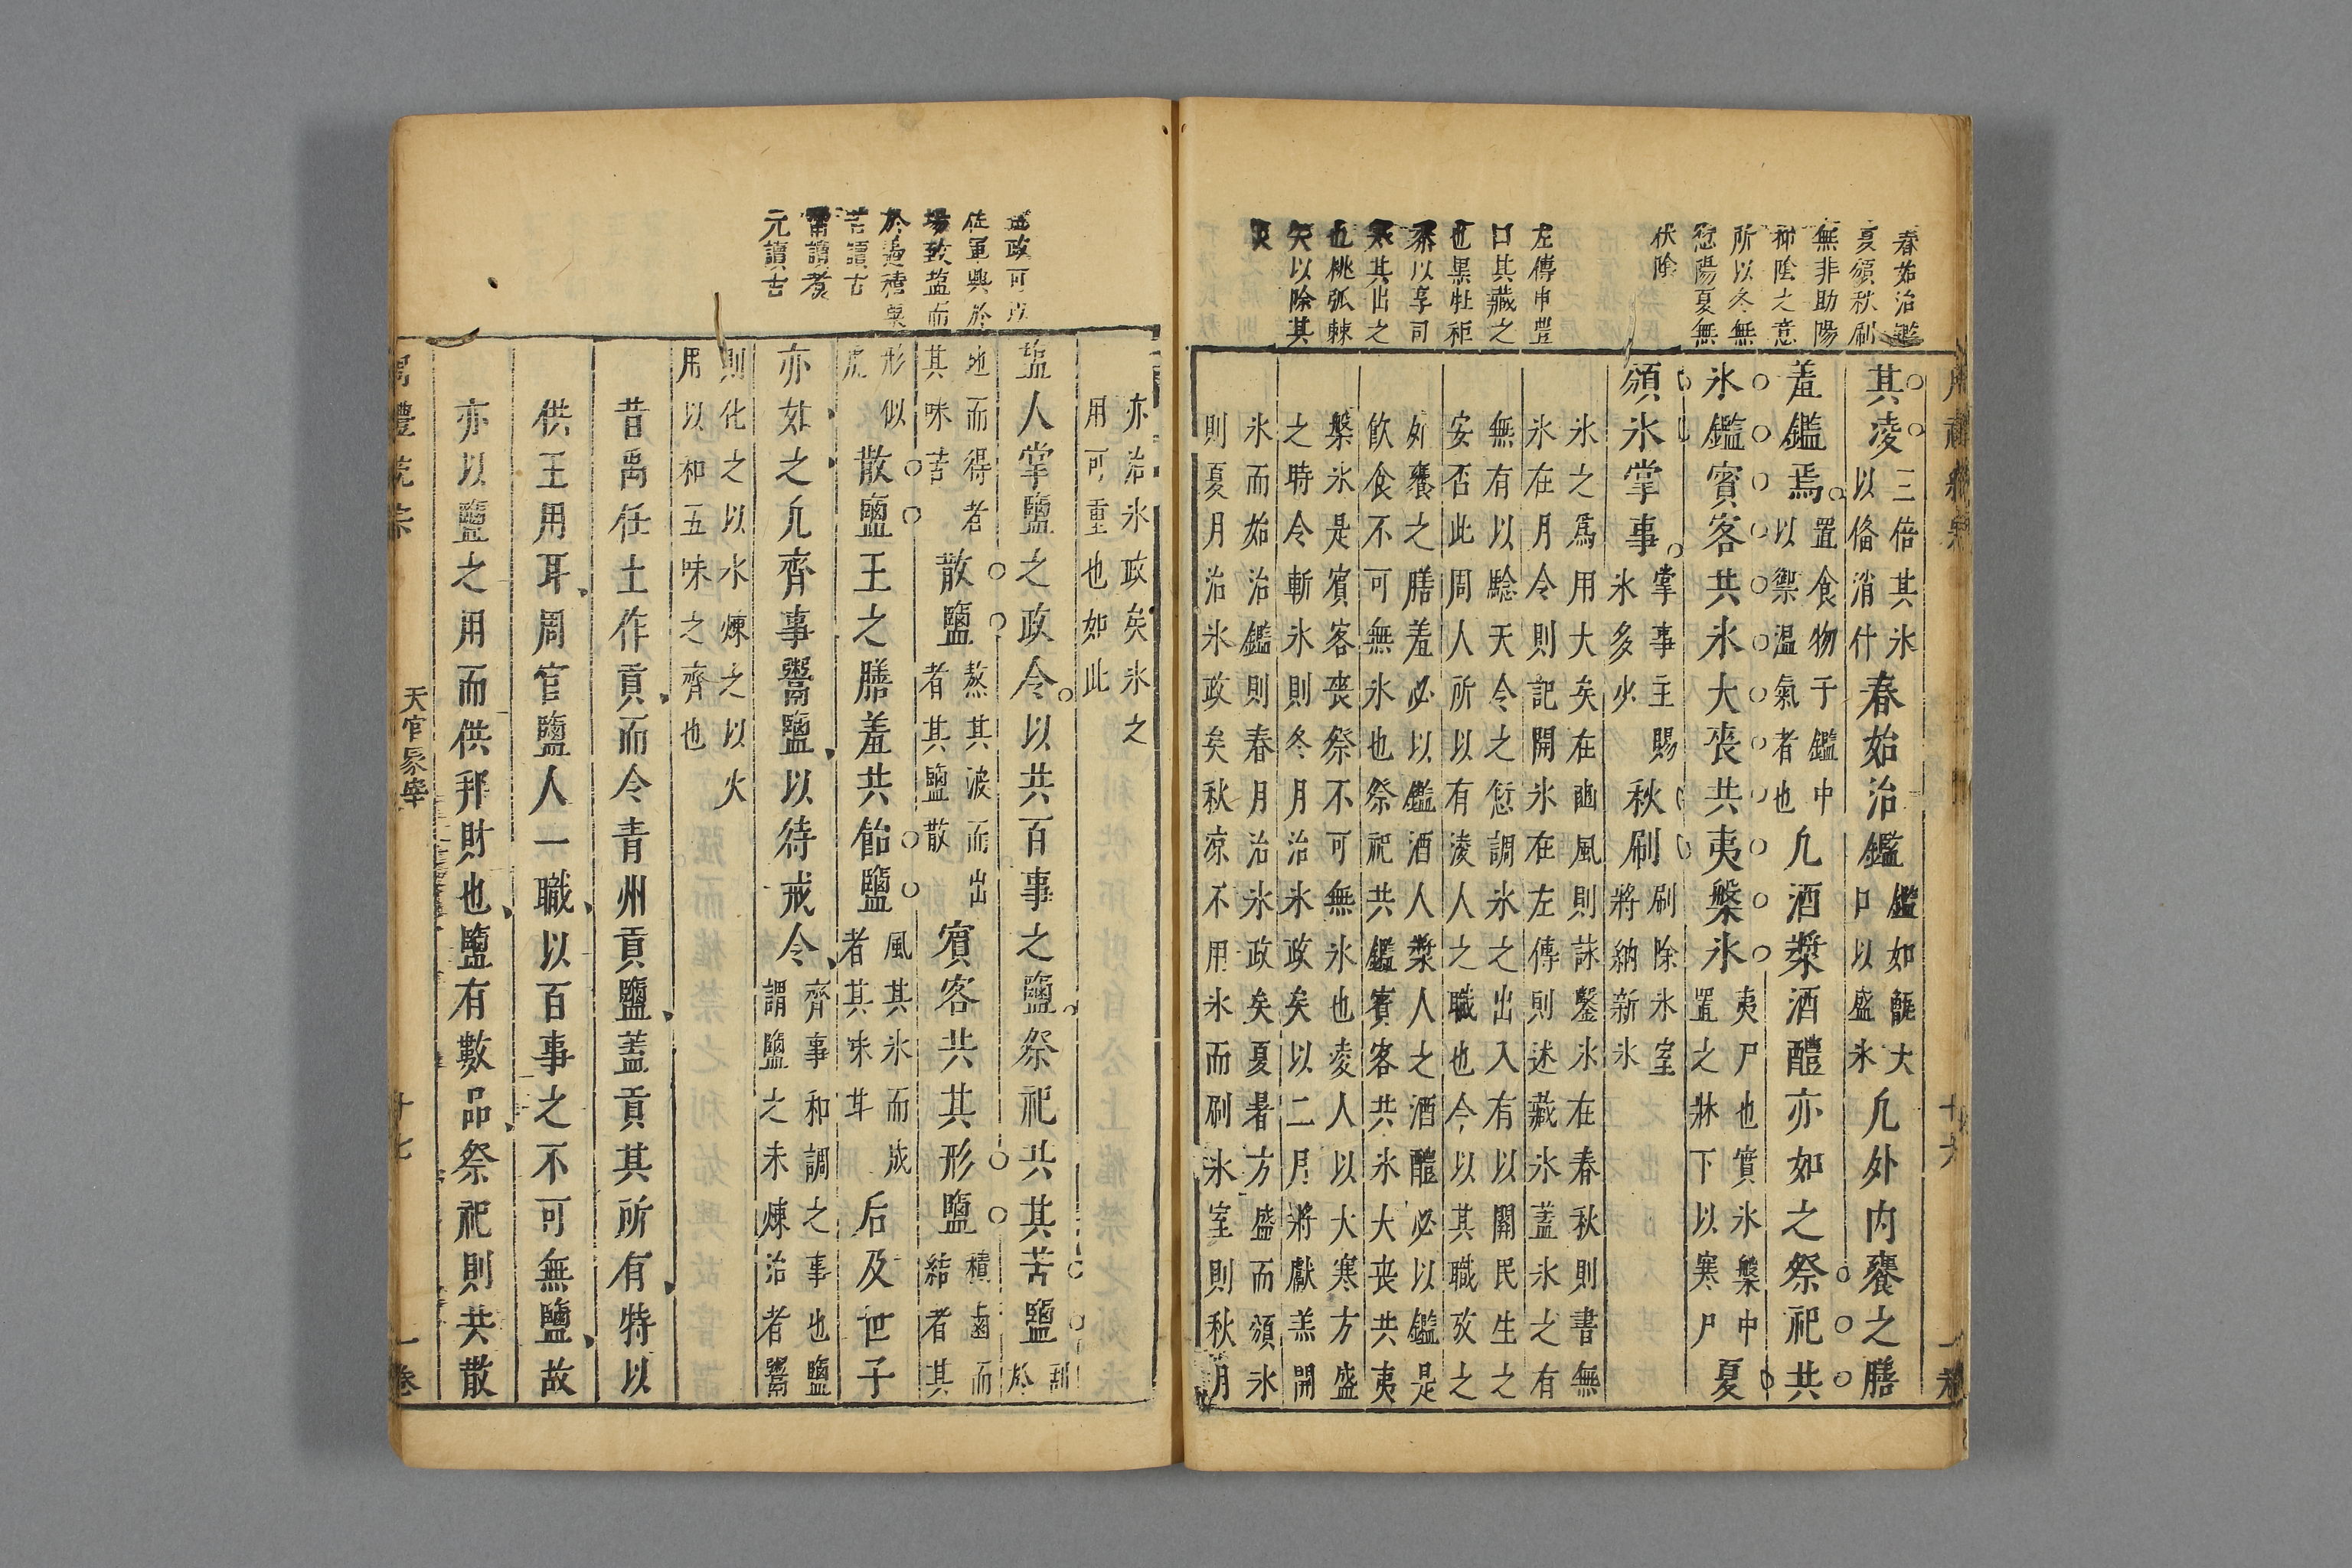 春始治鑑
夏頒秋刷
無非助陽
抑陰之意
所以冬無
愆陽夏無
伏陰
左傳申豊
曰其藏之
也黑牡秬
黍以享司
寒其出之
也桃弧棘
矢以除其
災
其凌三倍其氷以俻消什春始治鑑鑑如甀大口以盛氷凢外内饔之膳
羞鑑焉置食物于鑑中以禦温氣者也凢酒漿酒醴亦如之祭祀共
氷鑑賓客共氷大喪共夷槃氷夷尸也實氷槃中置之牀下以寒尸夏
頒氷掌事掌事主賜氷多少秋刷刷除氷室將納新氷
氷之爲用大矣在豳風則詠鑿氷在春秋則書無
氷在月令則記開氷在左傳則述藏氷蓋氷之有
無有以騐天令之愆調氷之出入有以關民生之
安否此周人所以有淩人之職也今以其職攷之
外饔之膳羞必以鑑酒人漿人之酒醴必以鑑是
飲食不可無氷也祭祀共鑑賓客共氷大丧共夷
槃氷是賓客喪祭不可無氷也凌人以大寒方盛
之時令斬氷則冬月治氷政矣以二月將獻羔開
氷而始治鑑則春月治氷政矣夏暑方盛而頒氷
則夏月治氷政矣秋凉不用氷而刷氷室則秋月
十六
亦治氷政矣氷之
用可重也如此
塩人掌鹽之政令以共百事之鹽祭祀共其苦鹽
地而得者其味苦散鹽熬其波而出者其鹽散賓客共其形鹽積鹵而結者其
形似虎散鹽王之膳羞共飴鹽風其氷而成者其味甘后及世子
亦如之凢齊事鬻鹽以待戒令齊事和調之事也鹽謂鹽之未煉治者鬻
則化之以水煉之以火
用以和五味之齊也
昔禹任土作貢而令青州貢鹽蓋貢其所有特以
供王用耳周官鹽人一職以百事之不可無鹽故
亦以鹽之用而供邦財也鹽有數品祭祀則共散
元讀古
天官冢宰
十七
一卷